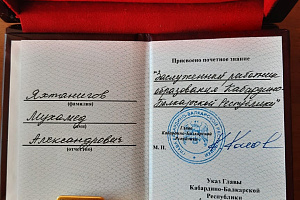 Яхтанигов
(фамилия)
Мухамед
(имя)
Александрович
(отчество)
Присвоено почетное звание
"Заслуженный работник
образования Кабардино-
Балкарской Республики"
Глава
Кабардино-Балкарской
Республики
М. П.
Указ Главы
Кабардино-Балкарской
Республики